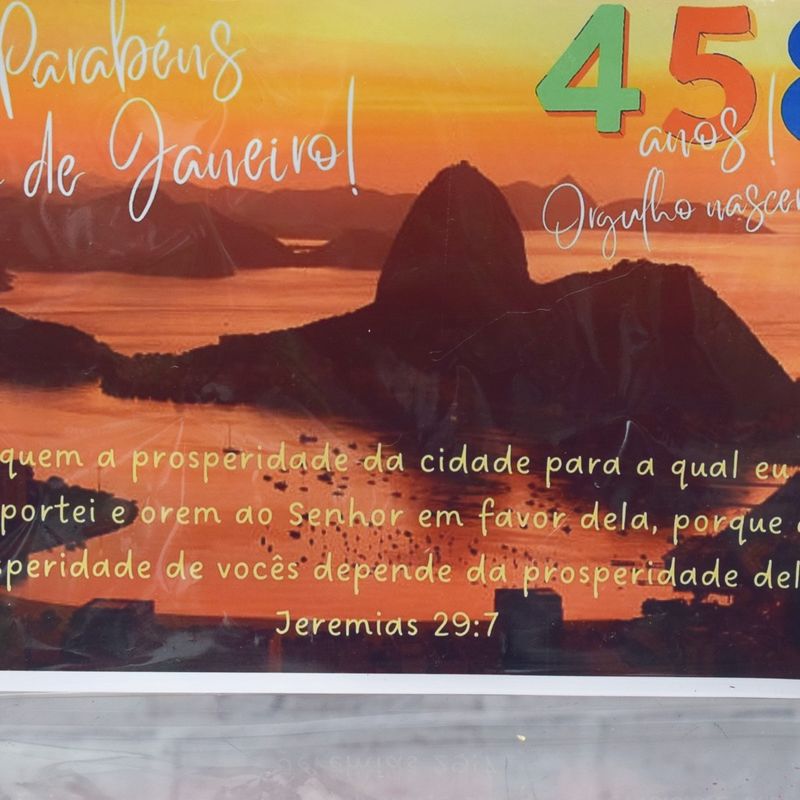 Parabéns
de Janeiro!
458
anos!
Orgulho nascer
quem a prosperidade da cidade para a qual eu
portei e orem ao Senhor em favor dela, porque
speridade de vocês depende da prosperidade del
Jeremias 29:7